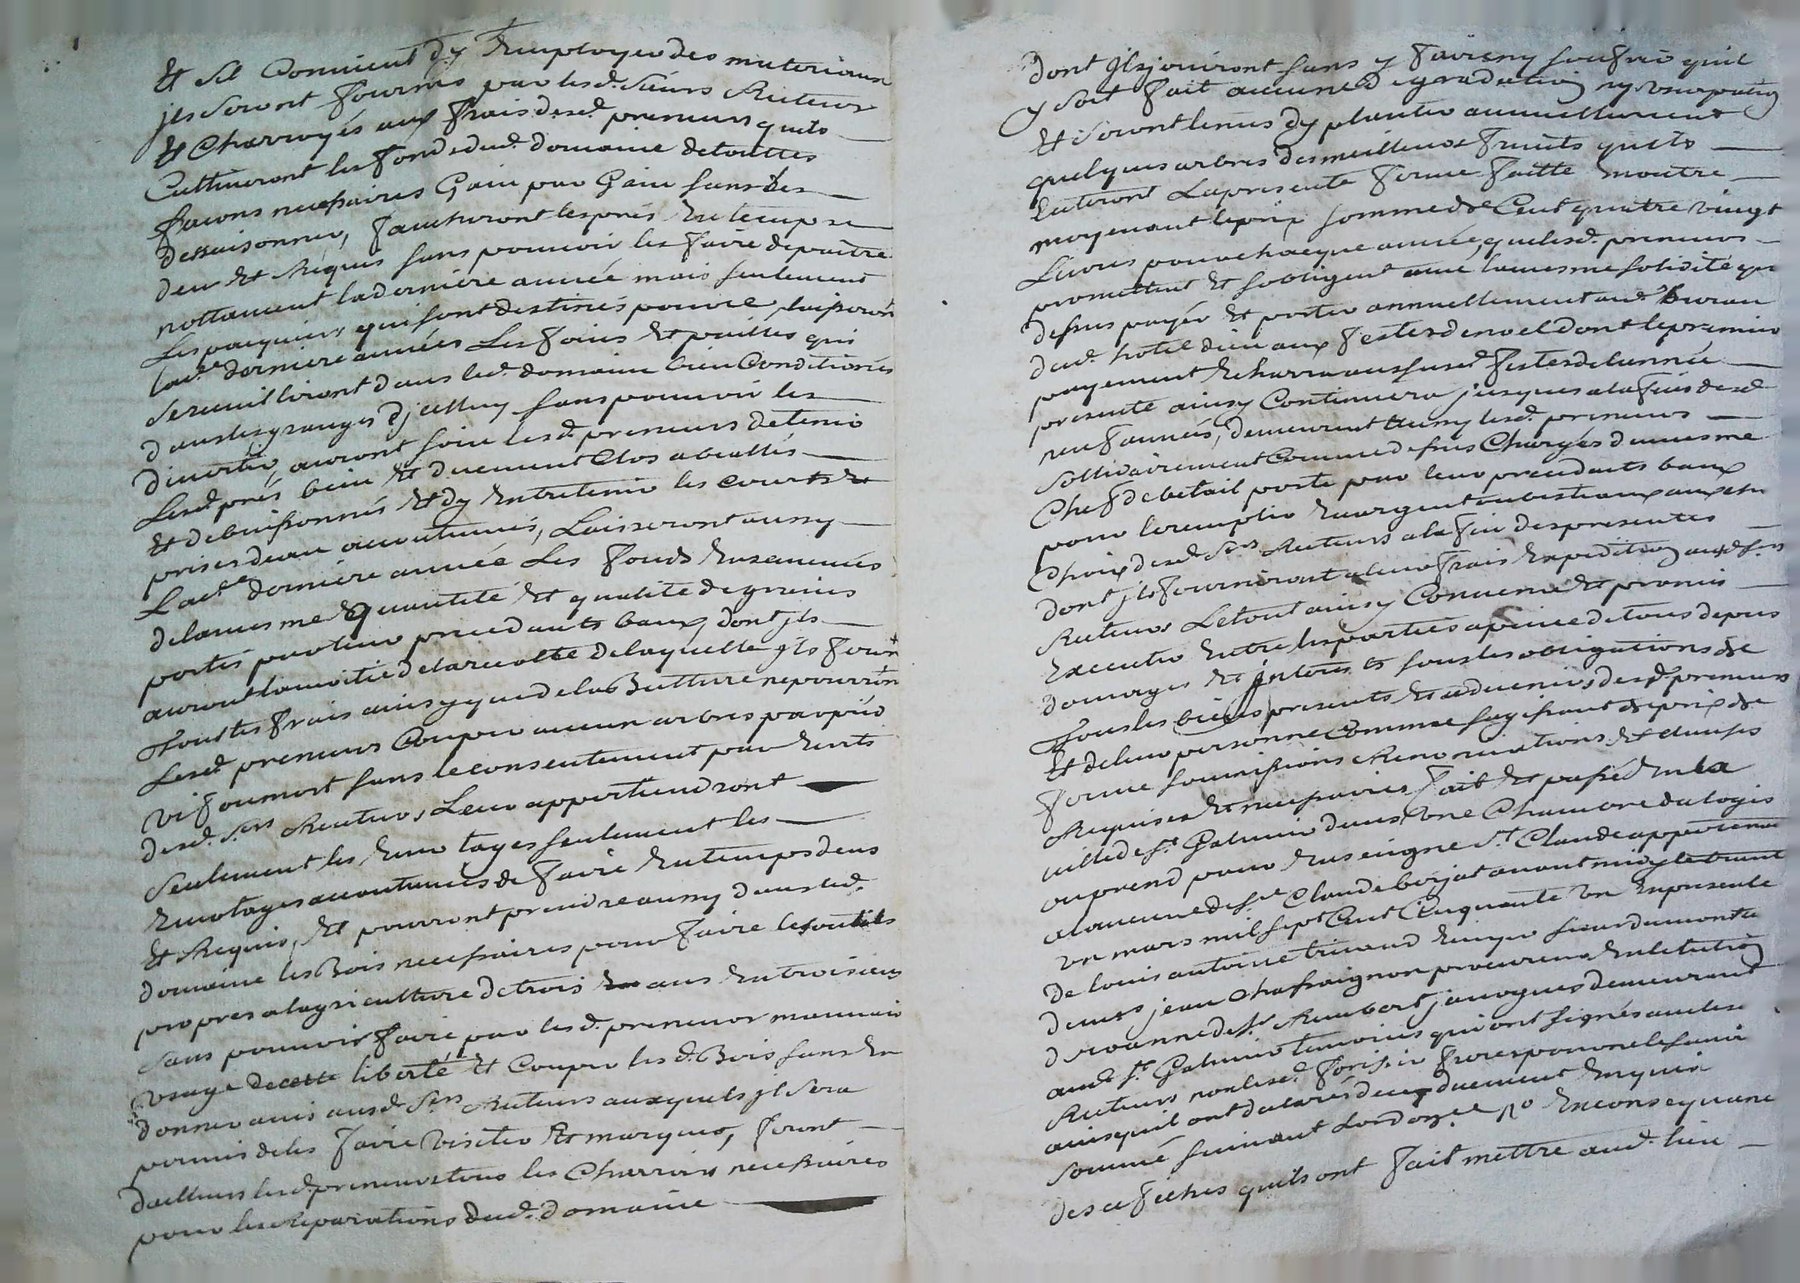 Et sil Convient dy Employer des materiaux
jls seront fournis par lesd. sieurs Recteurs
Et Charroyés aux frais desd. preneurs quils
Cultiveront les fonds dud. domaine de touttes
façons necessaires Gain par Gain sans les
dessaisonner, faucheront les prés En temps
deu Et Requis sans pouvoir les faire depaitre
nottament la derniere année mais seulement
Les pasquiers qui sont destinés pour ce, laisseront
lad. derniere années Les foins Et pailles qui
se reuilliront dans led. domaine bien Conditionnés
dans les granges djcelluy sans pouvoir les
divertir, auront soin lesd. preneurs de tenir
Lesd. prés bien Et duement Clos
Et debuissonnés Et dy Entretenir les cours Et
prises deau acoutumés, Laisseront aussy
Lad. derniere année Les fonds Ensemencés
de la mesme Quantité Et qualité de grains
portés par leur precedants baux, dont jls
auront la moitié de la recolte de laquelle jls feront
tous les frais ainsy que de la Batture ne pourront
Lesd. preneurs Couper aucun arbres par pied
vif ou mort sans le consentement par Ecrits
desd. srs Recteurs, Leur appartiendront
seulement les Emotages seulement les
Emotages acoutumés de faire En temps deus
Et Requis, Et pourront prendre aussy dans led.
domaine les Bois necessaires pour faire les outils
propres a lagriculture de trois ans En trois ans
sans pouvoir faire par lesd. preneurs mauvais
usage de cette liberté Et Couper lesd. Bois sans En
donner avis ausd. Srs Recteurs auxquels jl sera
permis de les faire Visiter Et marquer, feront
dailleurs lesd. preneurs tous les Charrois necessaires
pour les Reparations dud. domaine
dont jls jouiront sans y faire ny soufrir quil
y soit fait aucune degradation ny usurpation
Et seront tenus dy planter annuellement
quelques arbres des meilleurs fruits quils
Enteront La presente ferme faitte En outre
moyenant le prix somme de Cent quatre vingt
Livres pour chacque année, que lesd. preneurs
promettent Et sobligent avec la mesme solidité que
dessus payer Et porter annuellement aud. Bureau
dud. hotel dieu aux festes de noel dont le premier
payement Echerra aux susd. festes de lannée
presente ainsy Continuera jusques a la fin desd.
neuf années, demeurent aussy lesd. preneurs
sollidairement Comme dessus Chargés du mesme
Chef de betail porté par leur precedants baux
pour le remplir En argent ou bestiaux aux
Choix desd. Srs Recteurs a la fin des presentes
dont jls fourniront a leur frais Expedition ausd. Srs
Recteurs Le tout ainsy Convenu Et promis
Executer Entre les parties a peine de tous depens
domages Et jnterets sous les obligations de
tous les biens presents Et a venir desd. preneurs
Et de leur personne Comme sagissant de prix de
ferme soumissions Renonciations Et clauses
Requises Et necessaires fait Et passé En la
ville de St. Galmier dans Une Chambre du logis
ou prend pour Enseigne St. Claude appartenant
Claude avant midy le trente
un mars mil sept Cent Cinquante Un En presence
de louis antoine Ecuyer sieur dumont Et
jean Chassaignon procureur En lelection
de roanne de St. Rambert demeurant
aud. St. Galmier temoins qui ont signés avec lesd.
Recteurs non lesd. pour ne le savoir
ainsy quil ont declarés de ce duement Enquis Et
sommé suivant lordonce. En consequance
des affiches quils ont fait mettre aud. lieu